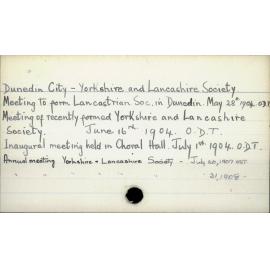 Dunedin City - Yorkshire and Lancashire Society
Meeting to form Lancastrian Soc. in Dunedin. May 28th 1904. O.D.T.
Meeting of recently formed Yorkshire and Lancashire
Society. June 16th. 1904. O.D.T.
Inaugural meeting held in Choral Hall. July 1st. 1904. O.D.T.
Annual meeting Yorkshire + Lancashire Society - July 20, 1907
1908 -